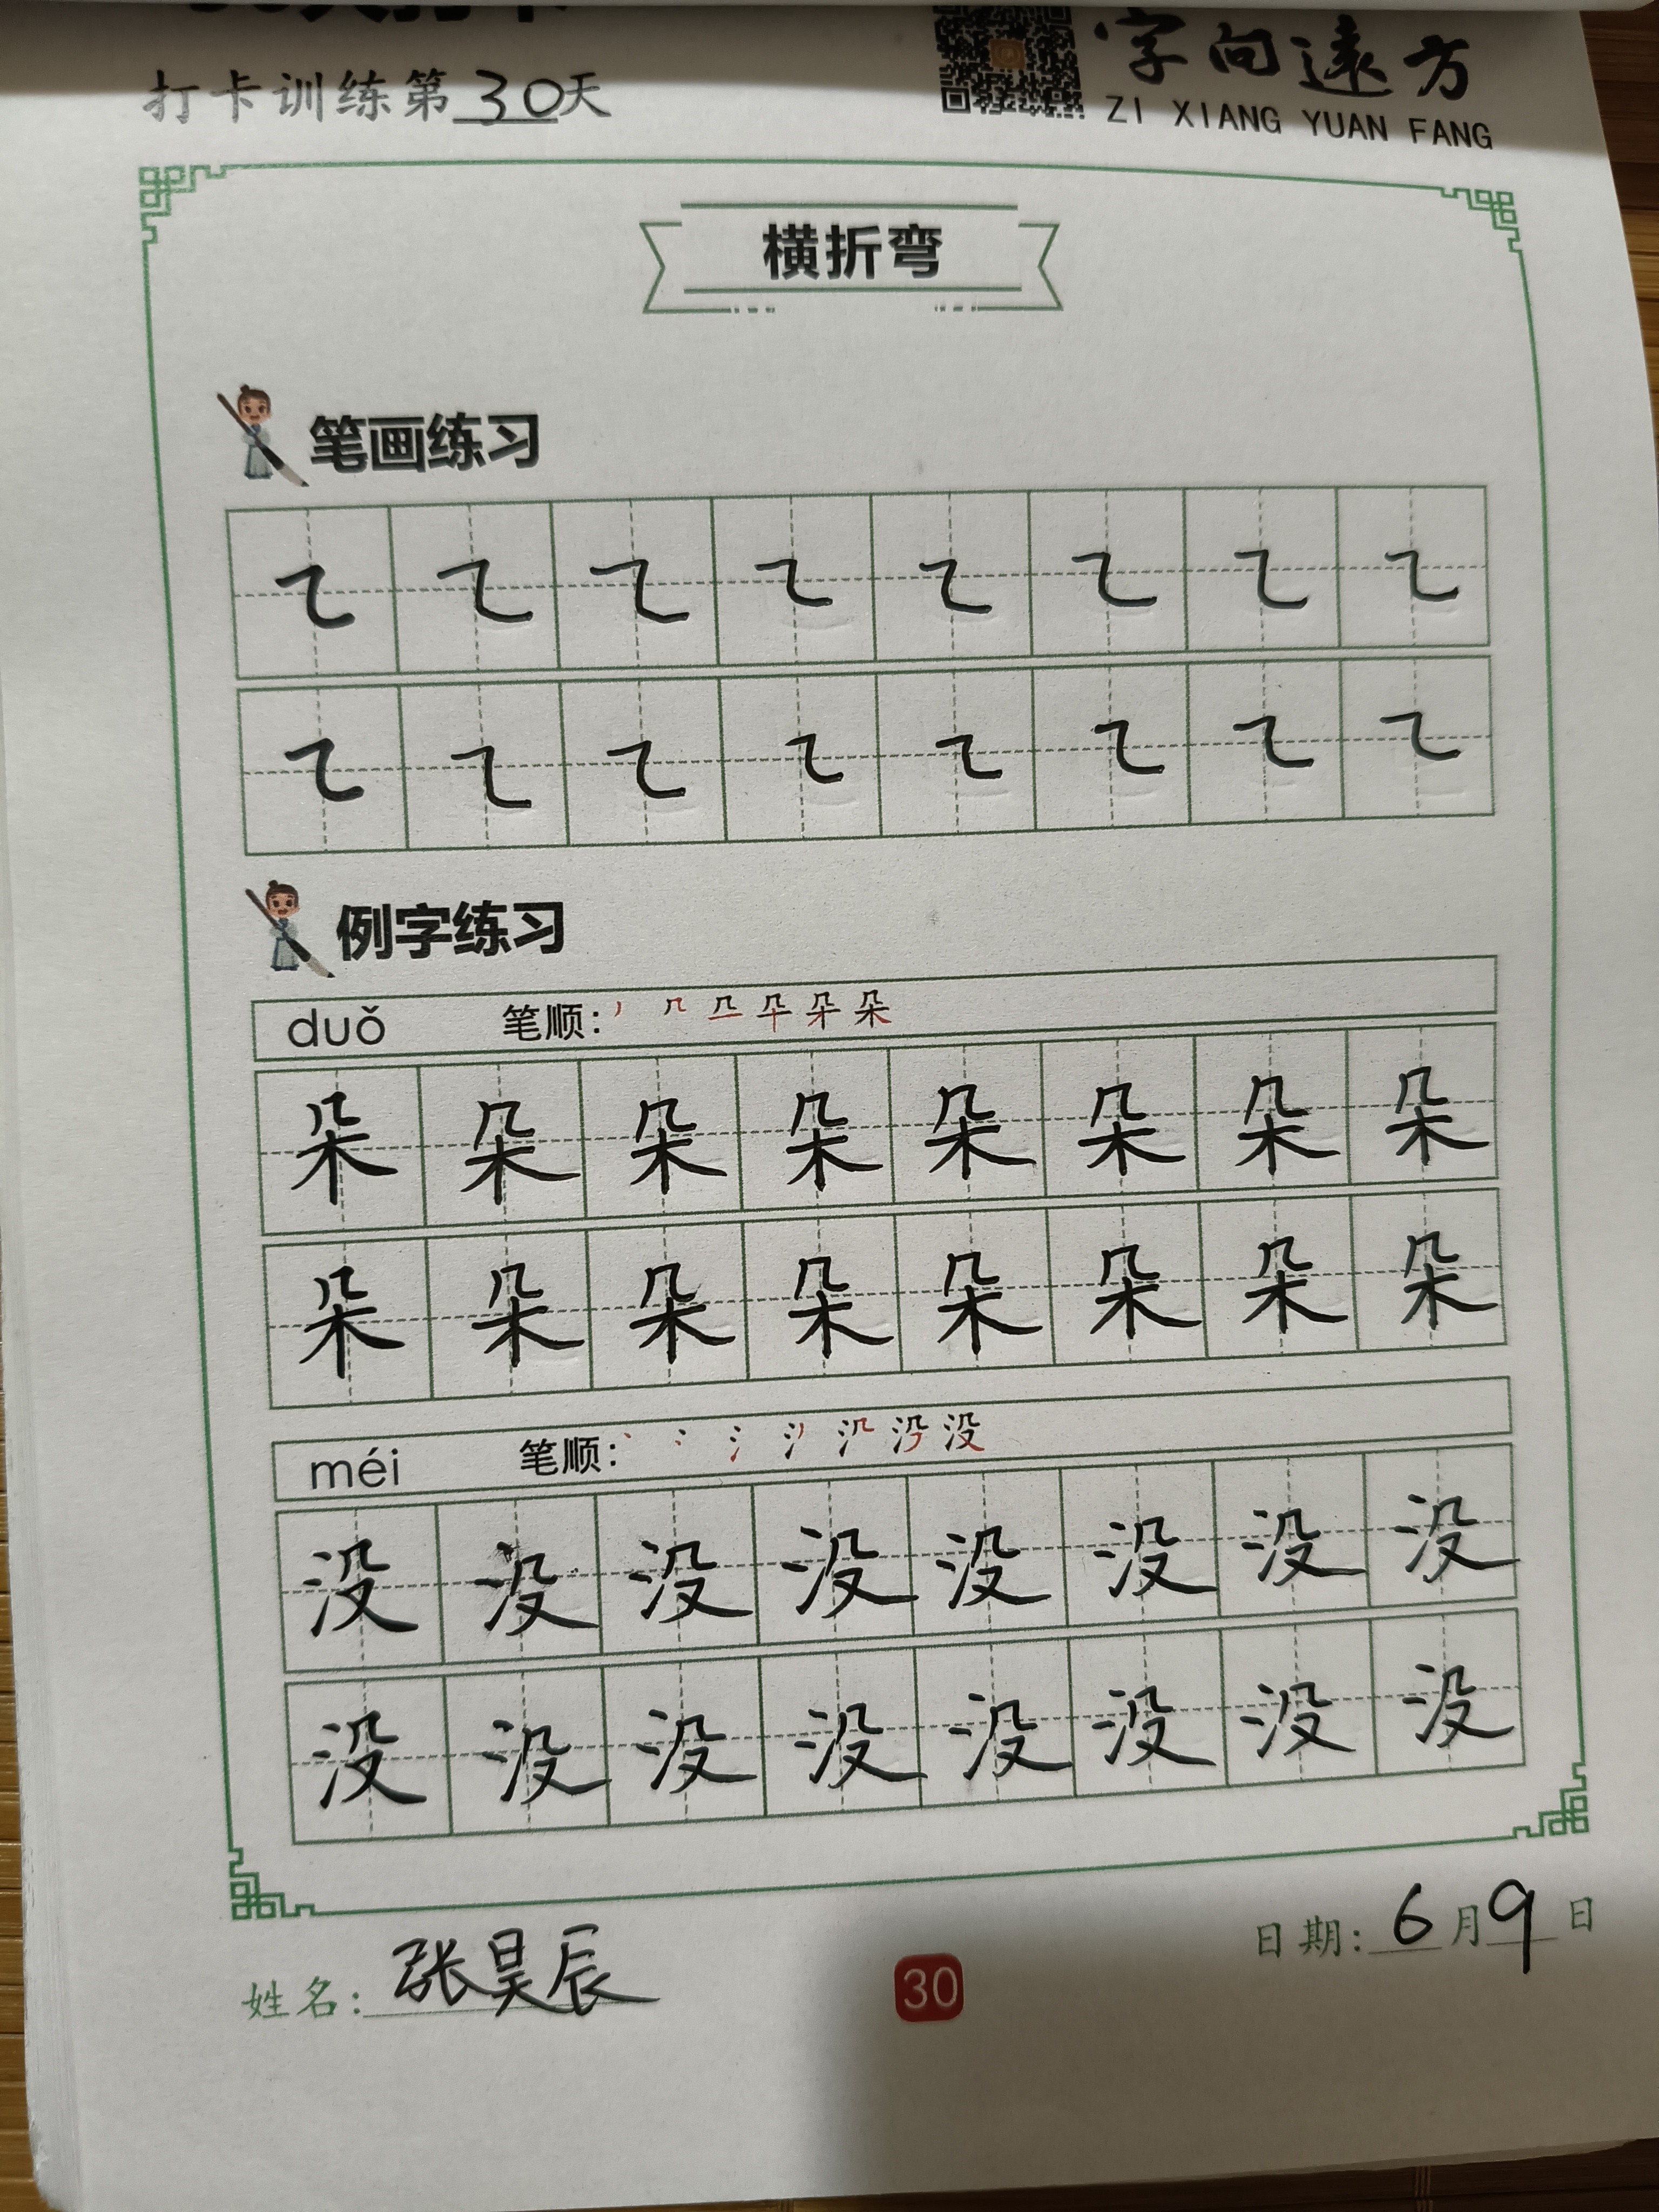 打卡训练第30天
字向遠方
ZI XIANG YUAN FANG
横折弯
笔画练习
㇍ ㇍ ㇍ ㇍ ㇍ ㇍ ㇍ ㇍
㇍ ㇍ ㇍ ㇍ ㇍ ㇍ ㇍ ㇍
例字练习
duǒ 笔顺:
朵 朵 朵 朵 朵 朵 朵 朵
朵 朵 朵 朵 朵 朵 朵 朵
méi 笔顺:
没 没 没 没 没 没 没 没
没 没 没 没 没 没 没 没
姓名:张昊辰
30
日期:6月9日